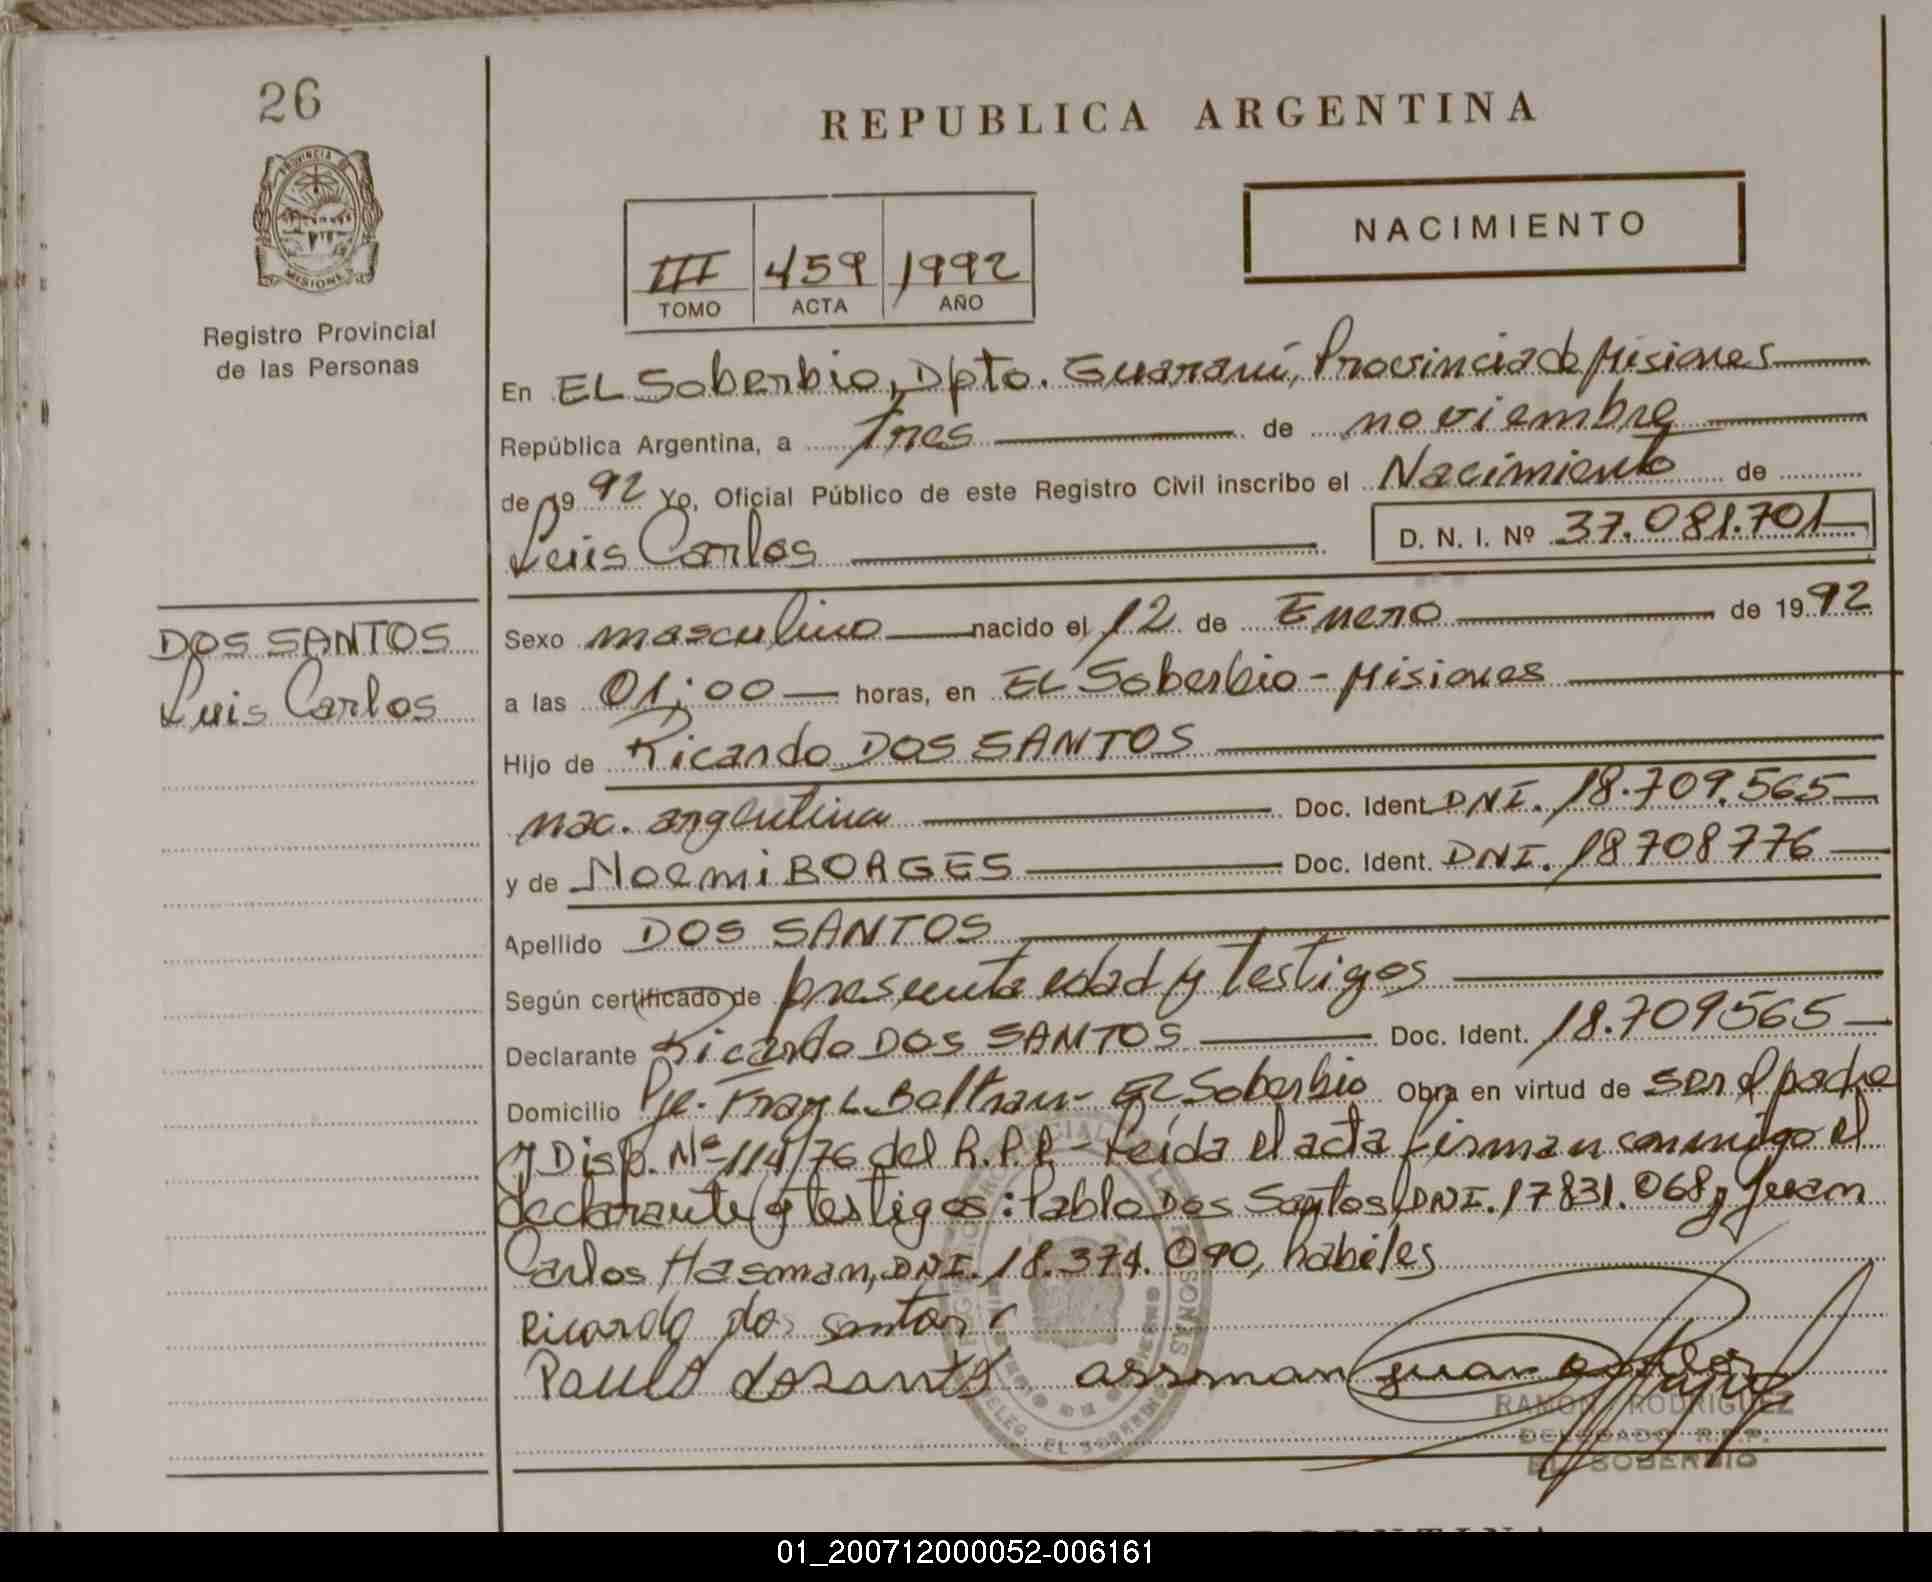 26
REPUBLICA ARGENTINA
PROVINCIA DE
MISIONES
NACIMIENTO
III 459 1992
TOMO ACTA AÑO
Registro Provincial
de las Personas
En EL Soberbio, Dpto. Guaraní, Provincia de Misiones
República Argentina, a tres de noviembre
de 1992 Yo, Oficial Público de este Registro Civil inscribo el Nacimiento de
Luis Carlos D. N. I. Nº 37.081.701
DOS SANTOS
Luis Carlos
Sexo masculino nacido el 12 de Enero de 1992
a las 01:00 horas, en EL Soberbio - Misiones
Hijo de Ricardo DOS SANTOS
nac. argentina Doc. Ident. DNI. 18.709.565
y de Noemi BORGES Doc. Ident. DNI. 18708776
Apellido DOS SANTOS
Según certificado de presunta edad y Testigos
Declarante Ricardo DOS SANTOS Doc. Ident. 18.709565
Domicilio Pje. Fray L. Beltran - El Soberbio Obra en virtud de ser el padre
y Disp. Nº 114/76 del R.P.P. - Leída el acta firman conmigo el
declarante y testigos: Pablo Dos Santos, DNI. 17831.068 y Juan
Carlos Hasman, DNI. 18.374.090, habiles
Ricardo dos santos
Paulo dosantos assman juan carlos
RAMON RODRIGUEZ
DELEGADO R.P.P.
EL SOBERBIO
DELEG. EL SOBERBIO
01_200712000052-006161